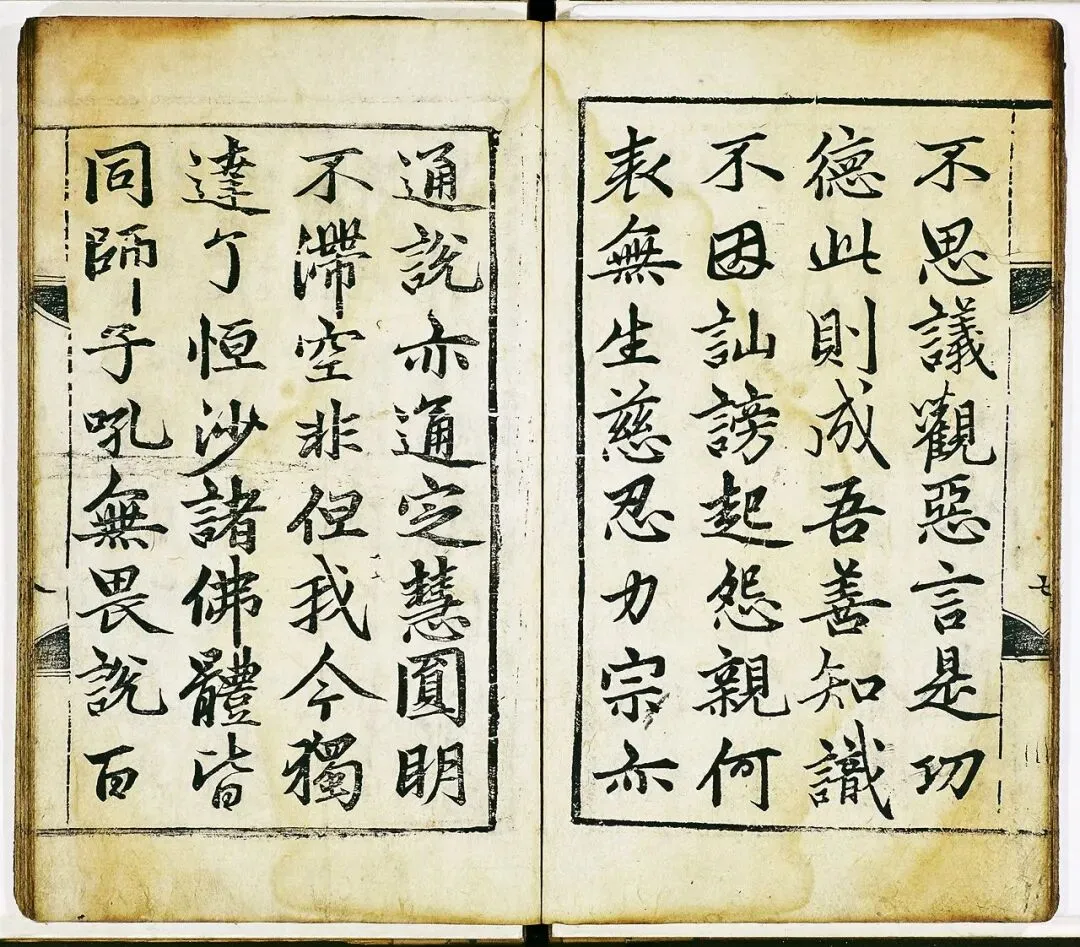 不思議觀惡言是功
德此則成吾善知識
不因訕謗起怨親何
表無生慈忍力宗亦
通說亦通定慧圓明
不滯空非但我今獨
達了恒沙諸佛體皆
同師子吼無畏說百
七